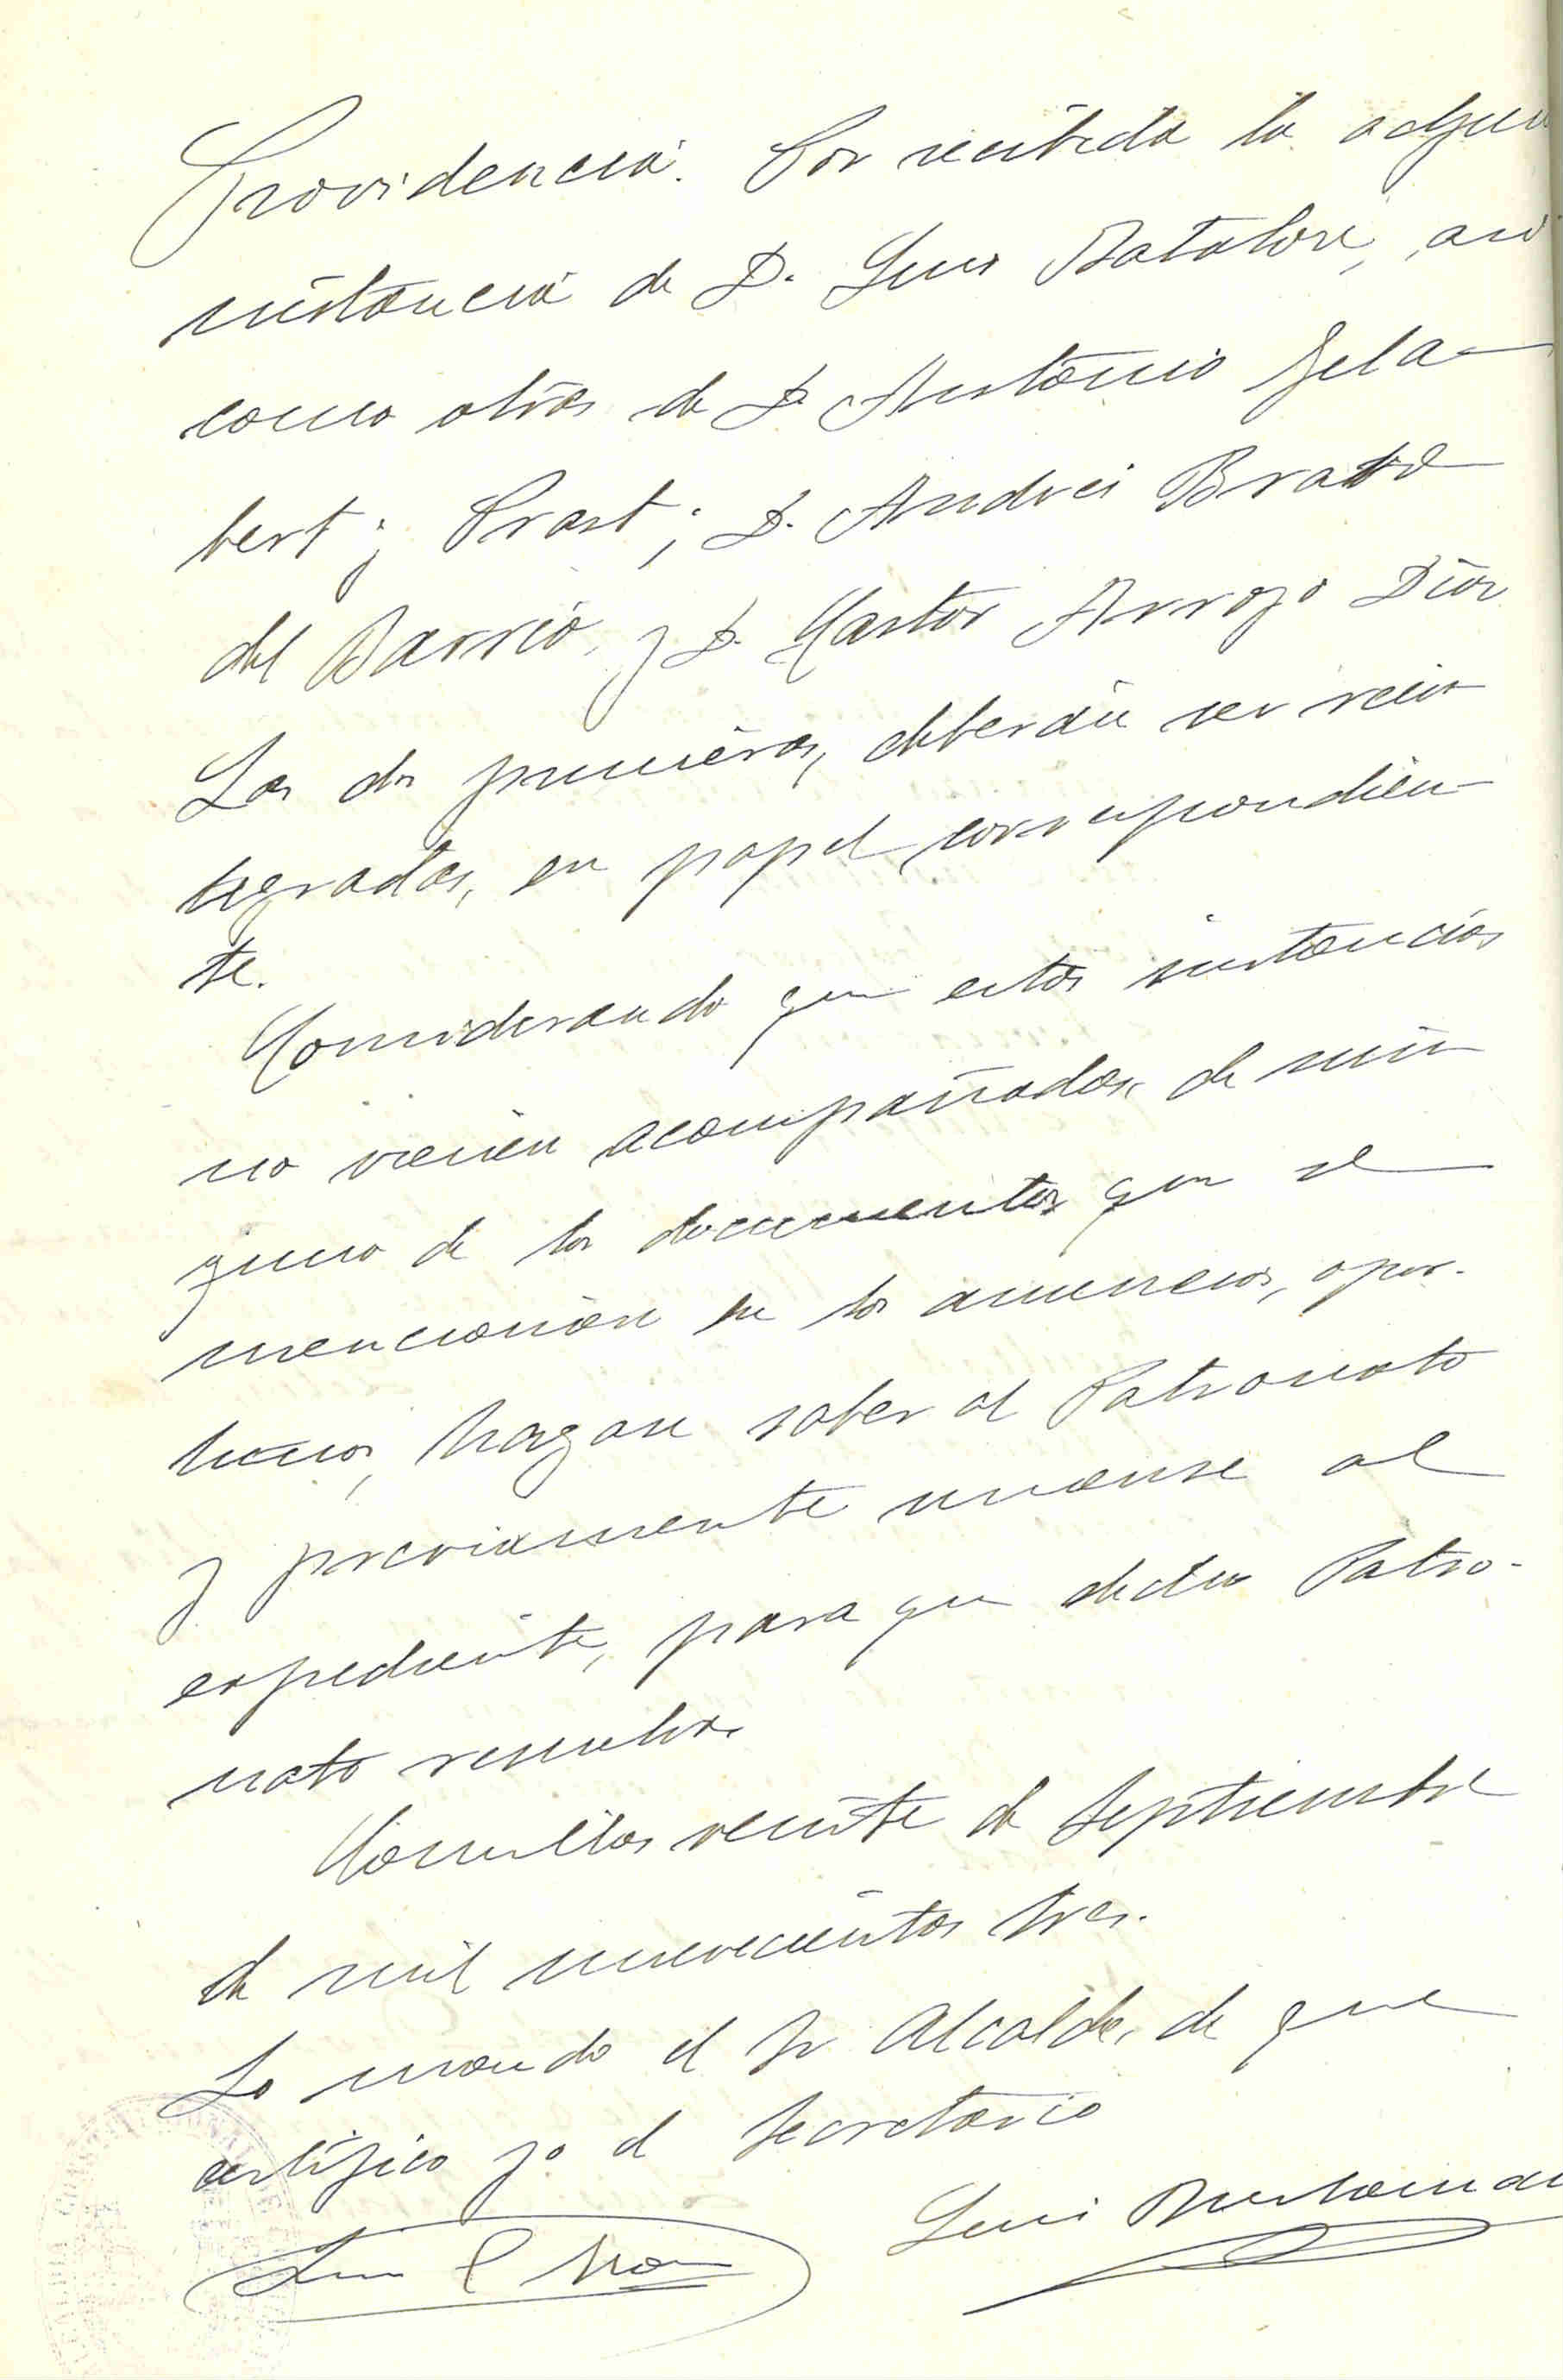 Providencia. Por recibida la adjun
instancia de D. Luis Batalore, asi
como otras de D. Antonio Gela-
bert y Prast; D. Andrés Bravo
del Barrio, y D. Castor Arroyo Diez
Las dos primeras, deberán ser rein
tegradas, en papel correspondien-
te.
Considerando que estas instancias
no vienen acompañadas, de nin
guno de los documentos que se
mencionan en los anuncios, opor-
tunos, hagase saber al Patronato
y previamente unanse al
expediente, para que dicho Patro-
nato resuelva.
Comillas veinte de Septiembre
de mil novecientos tres.
Lo mando el Sr Alcalde, de que
certifico yo el Secretario
Luis